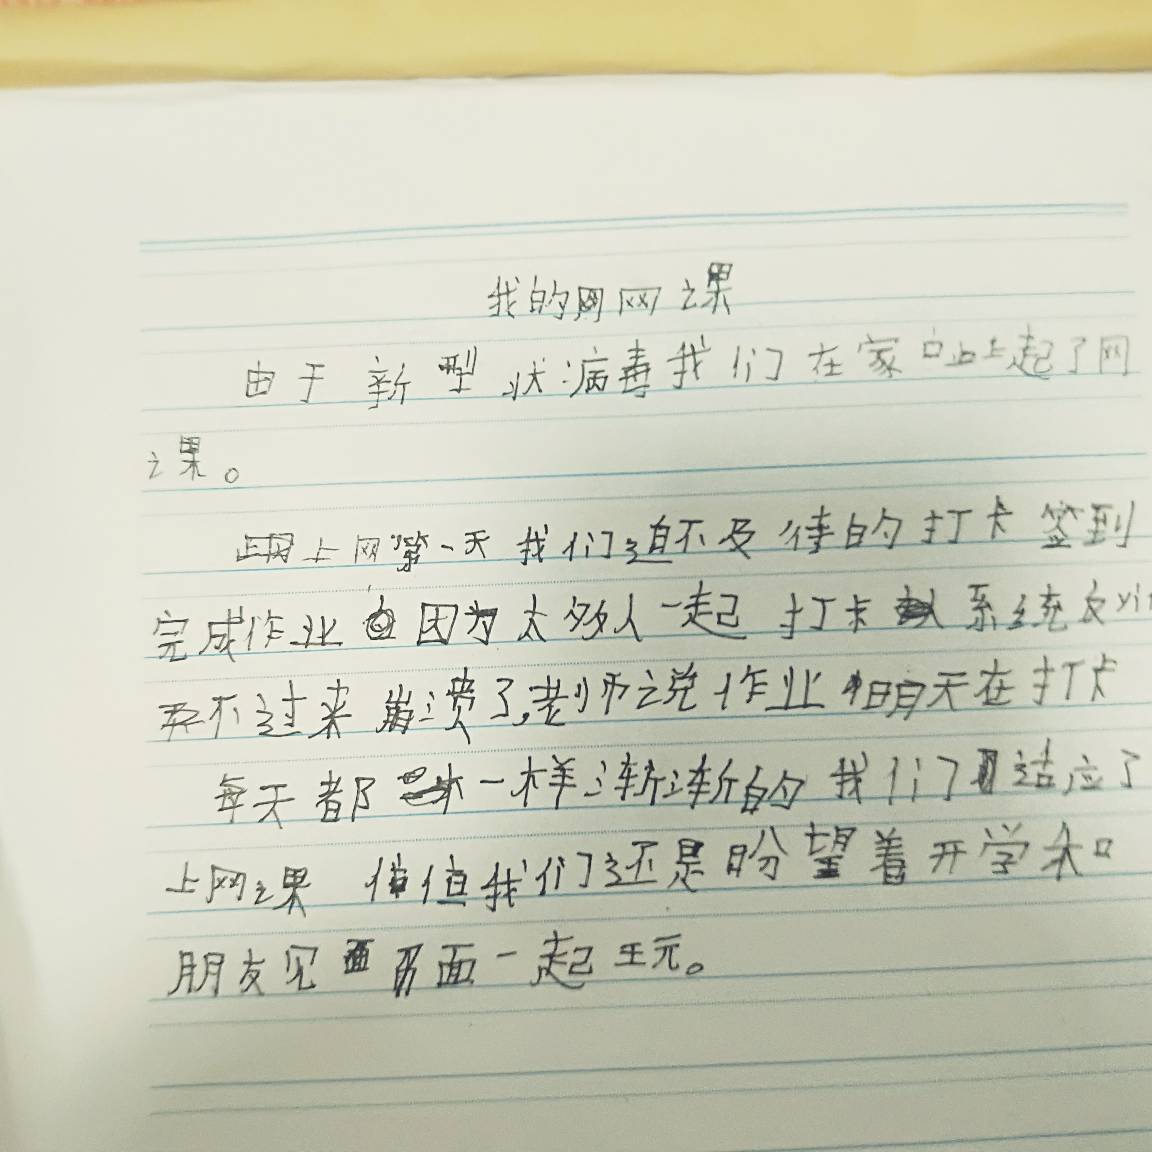 我的网课
由于新型状病毒我们在家里上起了网
课。
上网第一天我们迫不及待的打卡签到
完成作业因为太多人一起打卡系统反yin
不过来崩溃了,老师说作业明天在打卡
每天都一样渐渐的我们适应了
上网课 但我们还是盼望着开学和
朋友见面一起玩。